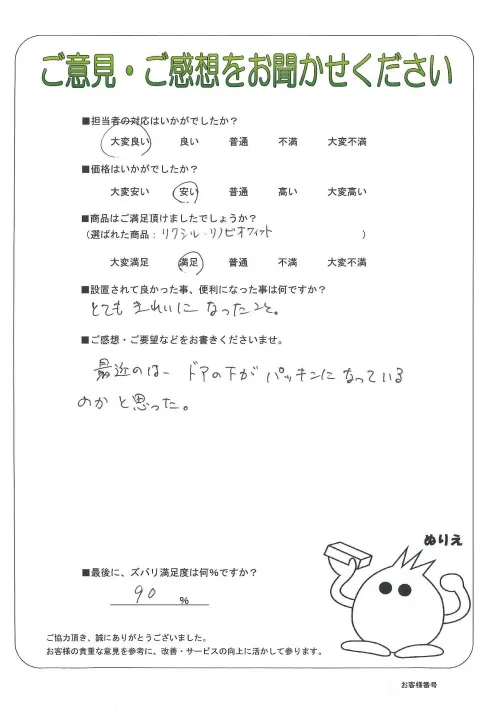 ご意見・ご感想をお聞かせください
■担当者の対応はいかがでしたか？
大変良い 良い 普通 不満 大変不満
■価格はいかがでしたか？
大変安い 安い 普通 高い 大変高い
■商品はご満足頂けましたでしょうか？
（選ばれた商品：リクシル・リノビオフィット ）
大変満足 満足 普通 不満 大変不満
■設置されて良かった事、便利になった事は何ですか？
とても きれいに なったこと。
■ご感想・ご要望などをお書きくださいませ。
最近のは ドアの下が パッキンに なっている
のか と思った。
ぬりえ
■最後に、ズバリ満足度は何％ですか？
90 ％
ご協力頂き、誠にありがとうございました。
お客様の貴重な意見を参考に、改善・サービスの向上に活かして参ります。
お客様番号